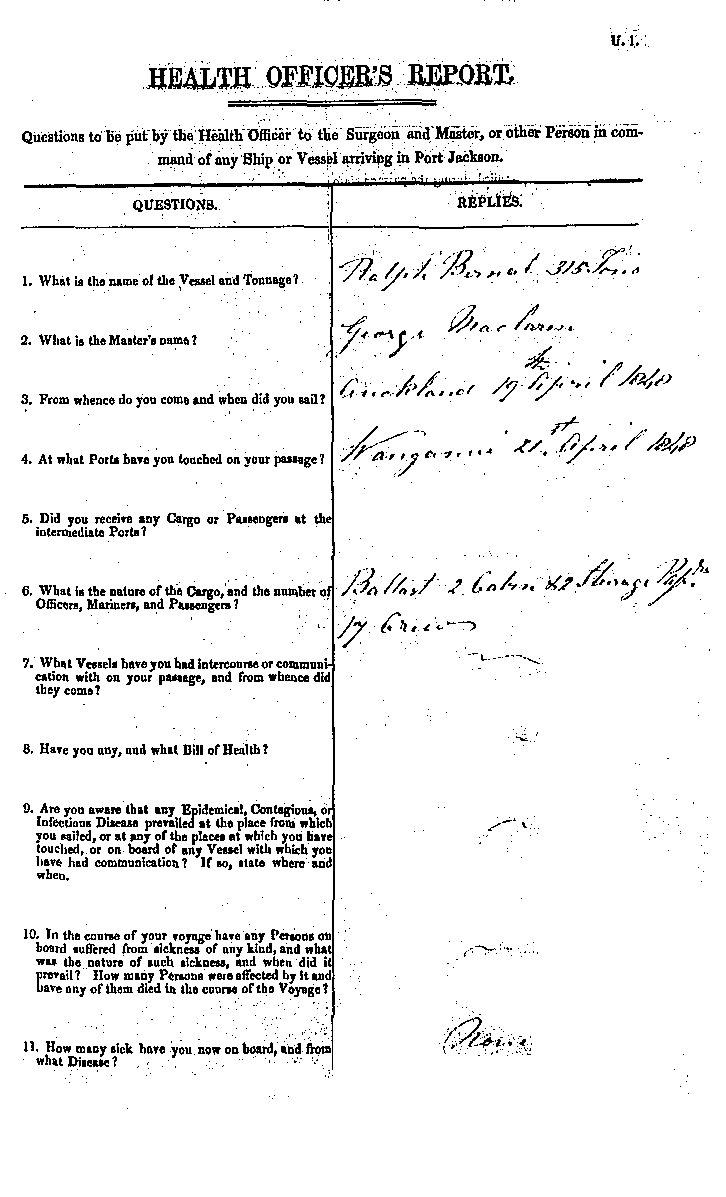 U. 1.
HEALTH OFFICER'S REPORT.
Questions to be put by the Health Officer to the Surgeon and Master, or other Person in com-
mand of any Ship or Vessel arriving in Port Jackson.
QUESTIONS.
REPLIES.
1. What is the name of the Vessel and Tonnage?
Ralph Bernal 315 Tons
2. What is the Master's name?
George Maclaren
3. From whence do you come and when did you sail?
Auckland 19th April 1848
4. At what Ports have you touched on your passage?
Wanganui 21st April 1848
5. Did you receive any Cargo or Passengers at the
intermediate Ports?
6. What is the nature of the Cargo, and the number of
Officers, Mariners, and Passengers?
Ballast 2 Cabin & 2 Steerage
17 Crew
7. What Vessels have you had intercourse or communi-
cation with on your passage, and from whence did
they come?
8. Have you any, and what Bill of Health?
9. Are you aware that any Epidemical, Contagious, or
Infectious Disease prevailed at the place from which
you sailed, or at any of the places at which you have
touched, or on board of any Vessel with which you
have had communication? If so, state where and
when.
10. In the course of your voyage have any Persons on
board suffered from sickness of any kind, and what
was the nature of such sickness, and when did it
prevail? How many Persons were affected by it and
have any of them died in the course of the Voyage?
11. How many sick have you now on board, and from
what Disease?
None